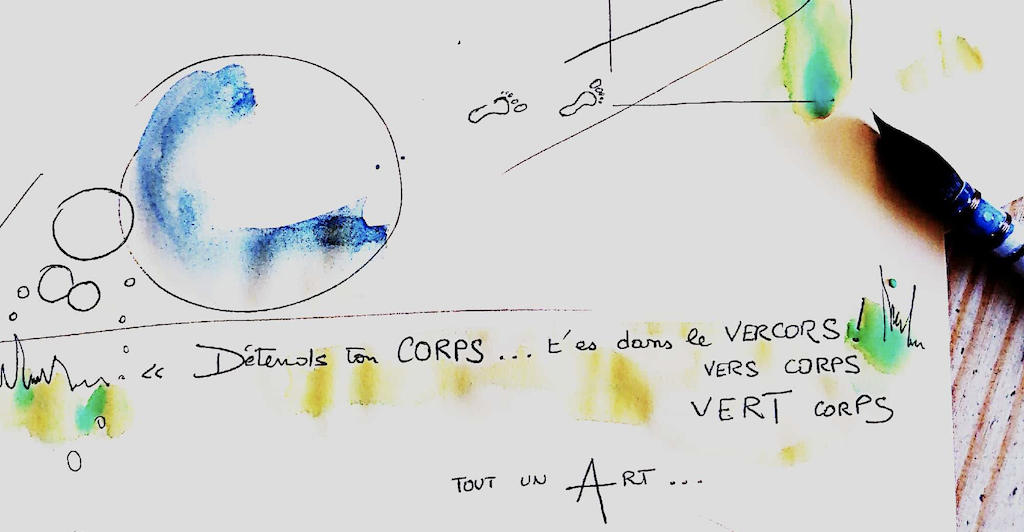 « Détends ton CORPS ... t'es dans le VERCORS !
VERS CORPS
VERT CORPS
TOUT UN ART ...